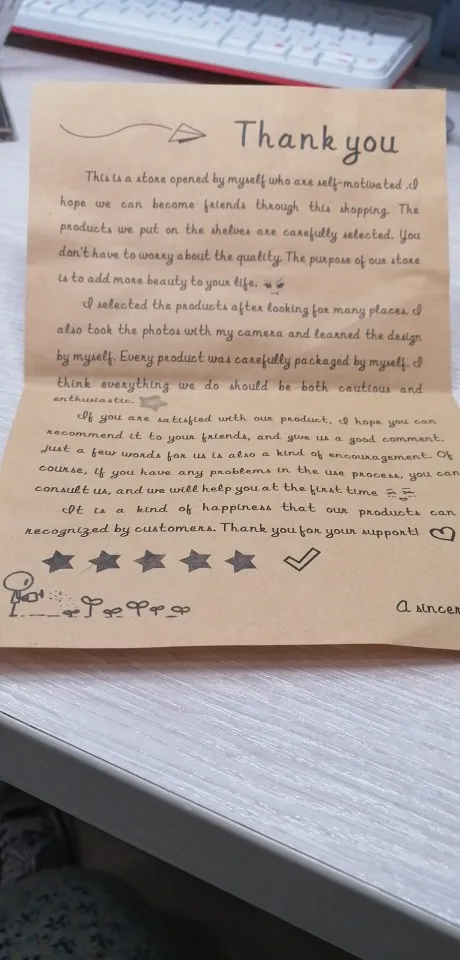 Thank you
This is a store opened by myself who are self-motivated .I
hope we can become friends through this shopping. The
products we put on the shelves are carefully selected. You
don't have to worry about the quality. The purpose of our store
is to add more beauty to your life.
I selected the products after looking for many places. I
also took the photos with my camera and learned the design
by myself. Every product was carefully packaged by myself. I
think everything we do should be both cautious and
enthusiastic.
If you are satisfied with our product, I hope you can
recommend it to your friends, and give us a good comment.
Just a few words for us is also a kind of encouragement. Of
course, if you have any problems in the use process, you can
consult us, and we will help you at the first time
It is a kind of happiness that our products can
recognized by customers. Thank you for your support!
A sincer